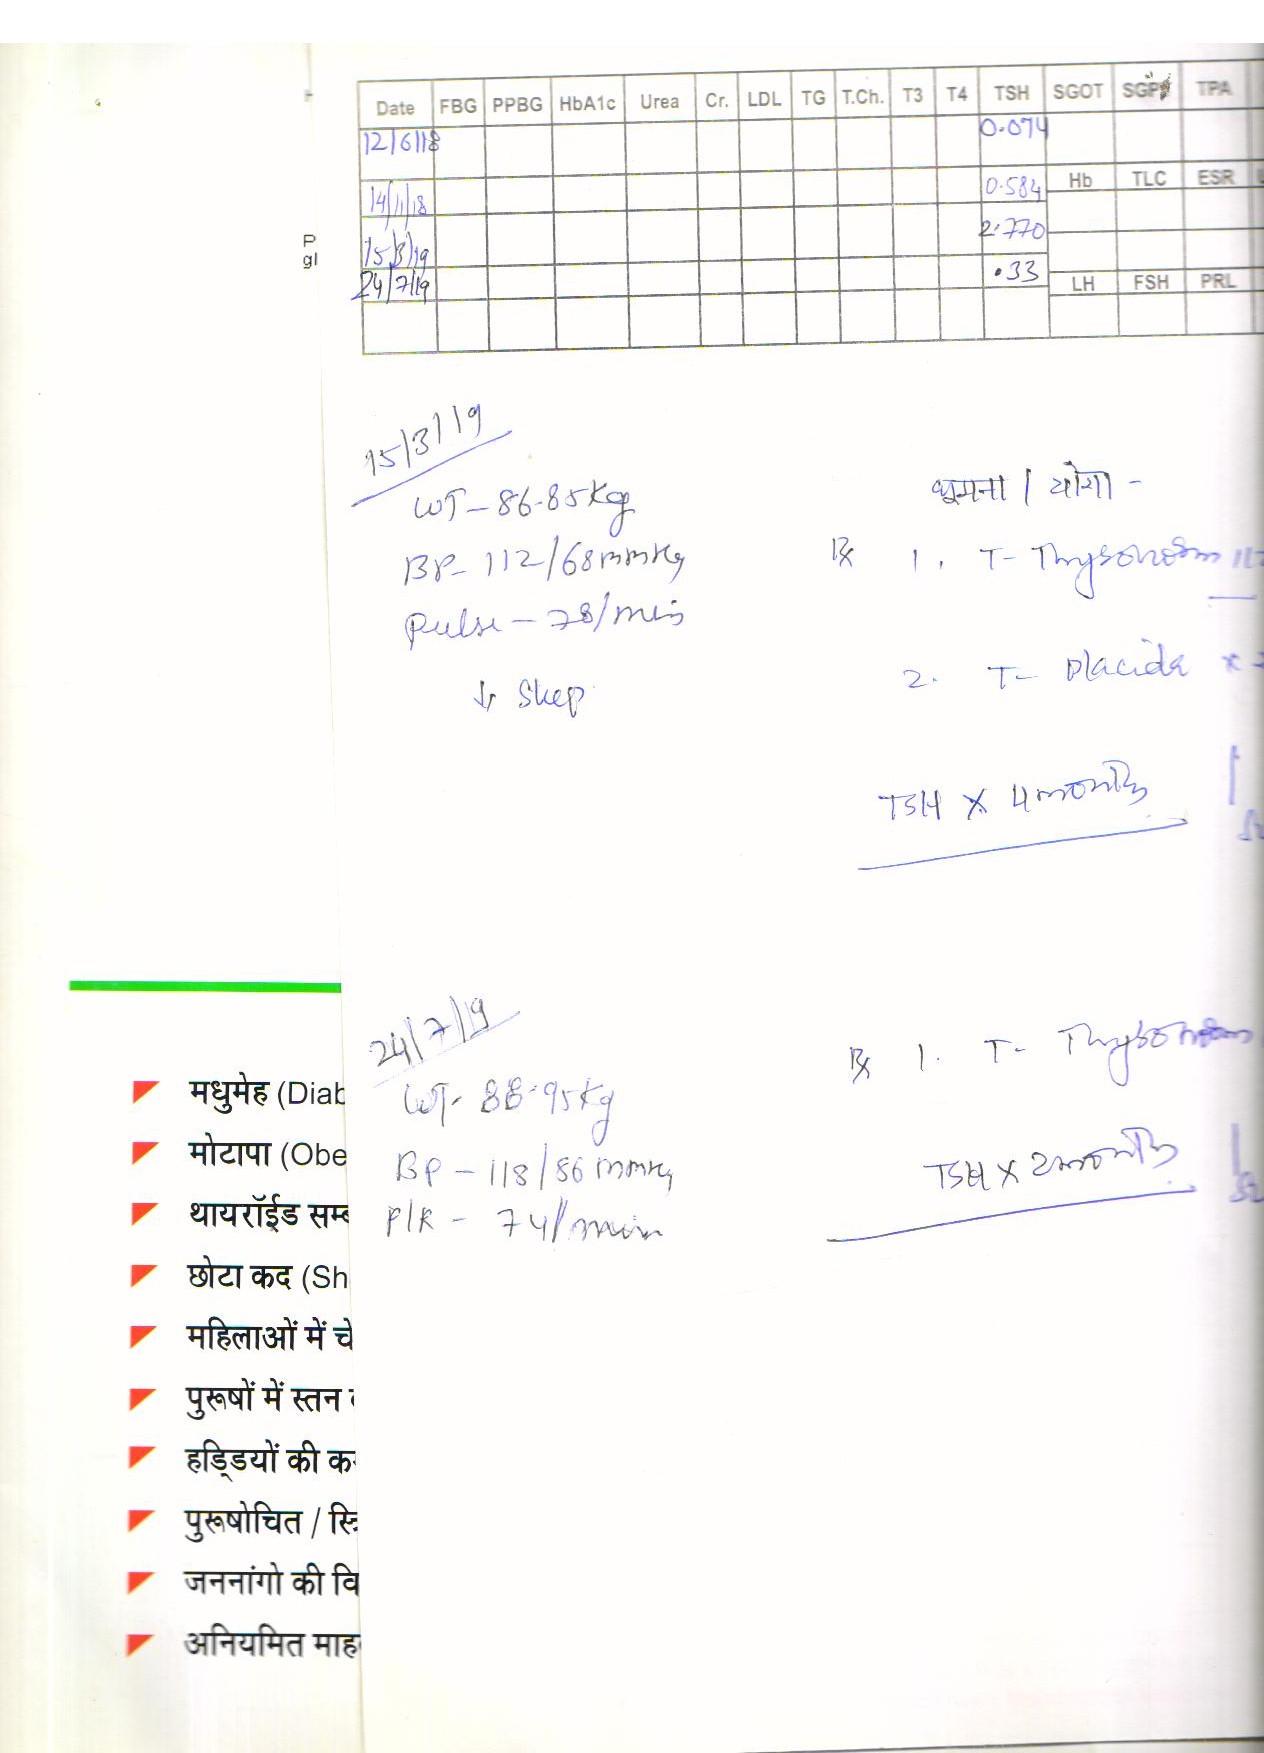 Date FBG PPBG HbA1c Urea Cr. LDL TG T.Ch. T3 T4 TSH SGOT SGPT TPA
12/6/18 0.074
14/1/18 0.584 Hb TLC ESR
15/3/19 2.770
24/7/19 .33 LH FSH PRL
P
gl
15/3/19
WT - 86.85 kg
BP - 112/68 mmHg
Pulse - 78/min
↓ Sleep
घूमना / योगा -
Rx 1. T- Thyronorm
2. T- Placida x
TSH x 4 months
24/7/19
WT - 88.95 kg
BP - 118/86 mmHg
P/R - 74/min
Rx 1. T- Thyronorm
TSH x 2 months
मधुमेह (Diab
मोटापा (Obe
थायरॉईड सम्ब
छोटा कद (Sh
महिलाओं में चे
पुरूषों में स्तन
हड्डियों की
पुरूषोचित / स्त्रि
जननांगो की वि
अनियमित माह